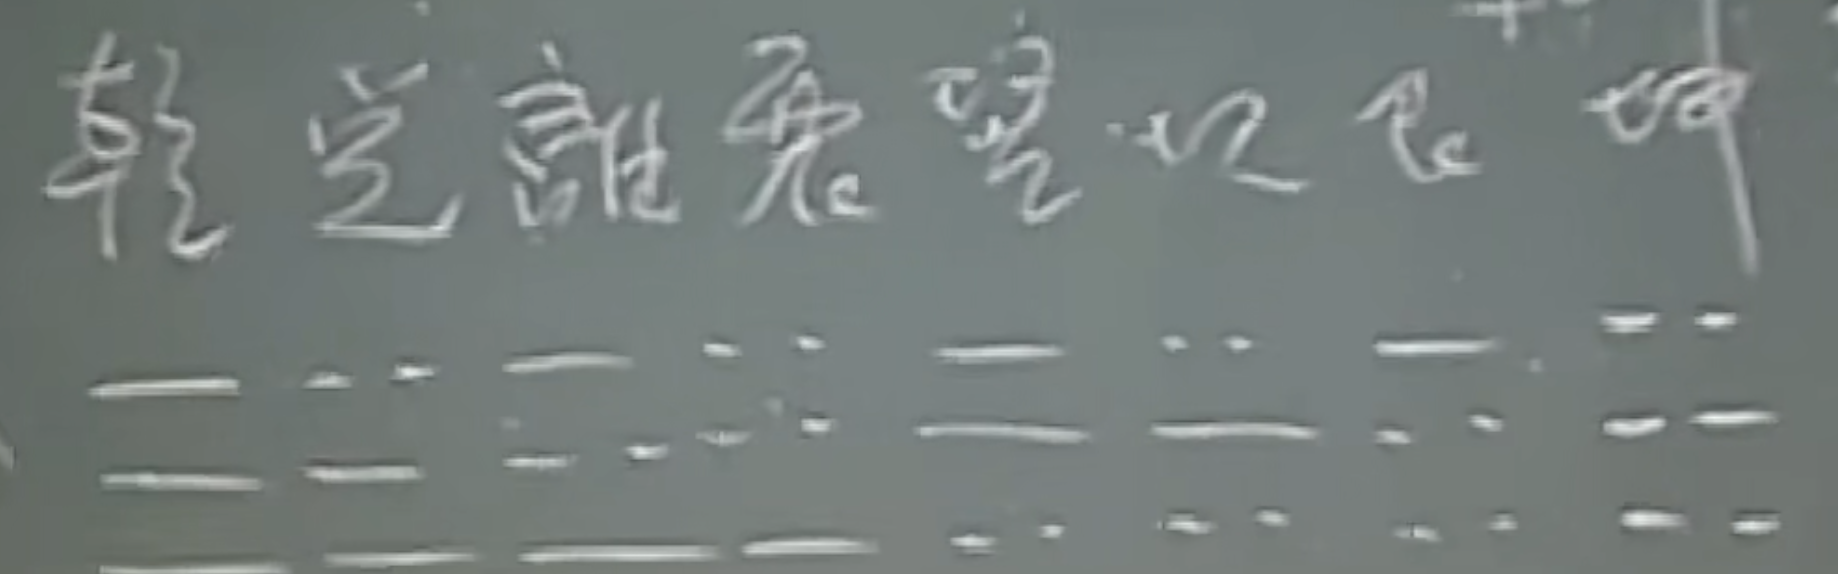 乾兑離震巽坎艮坤